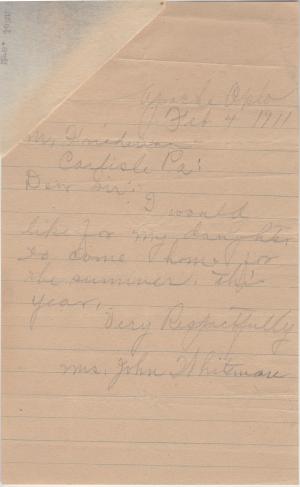 Apache Okla
Feb 4 1911
Mr Friedman
Carlisle Pa:
Dear Sir:
I would
like for my daughter
to come home for
the summer. this
year.
Very Respectfully
Mrs. John Whitman